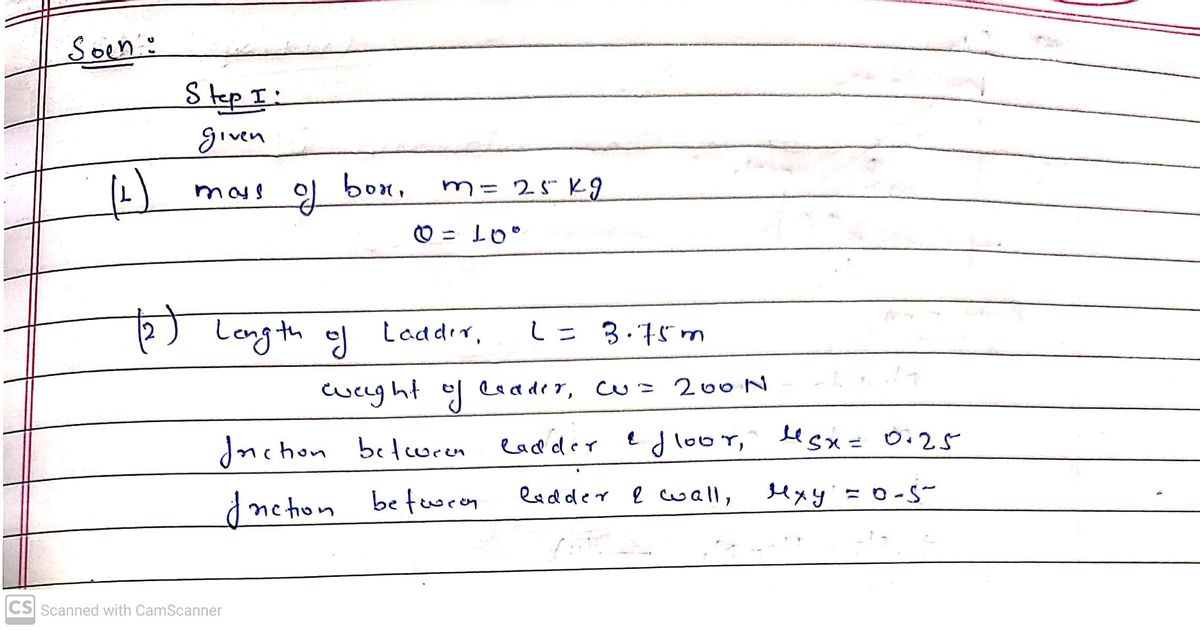 Soln:
Step I:
given
(1) mass of box, m = 25 kg
θ = 10°
(2) Length of Ladder, L = 3.75 m
weight of ladder, w = 200 N
friction between ladder & floor, μsx = 0.25
friction between ladder & wall, μxy = 0.5
CS Scanned with CamScanner